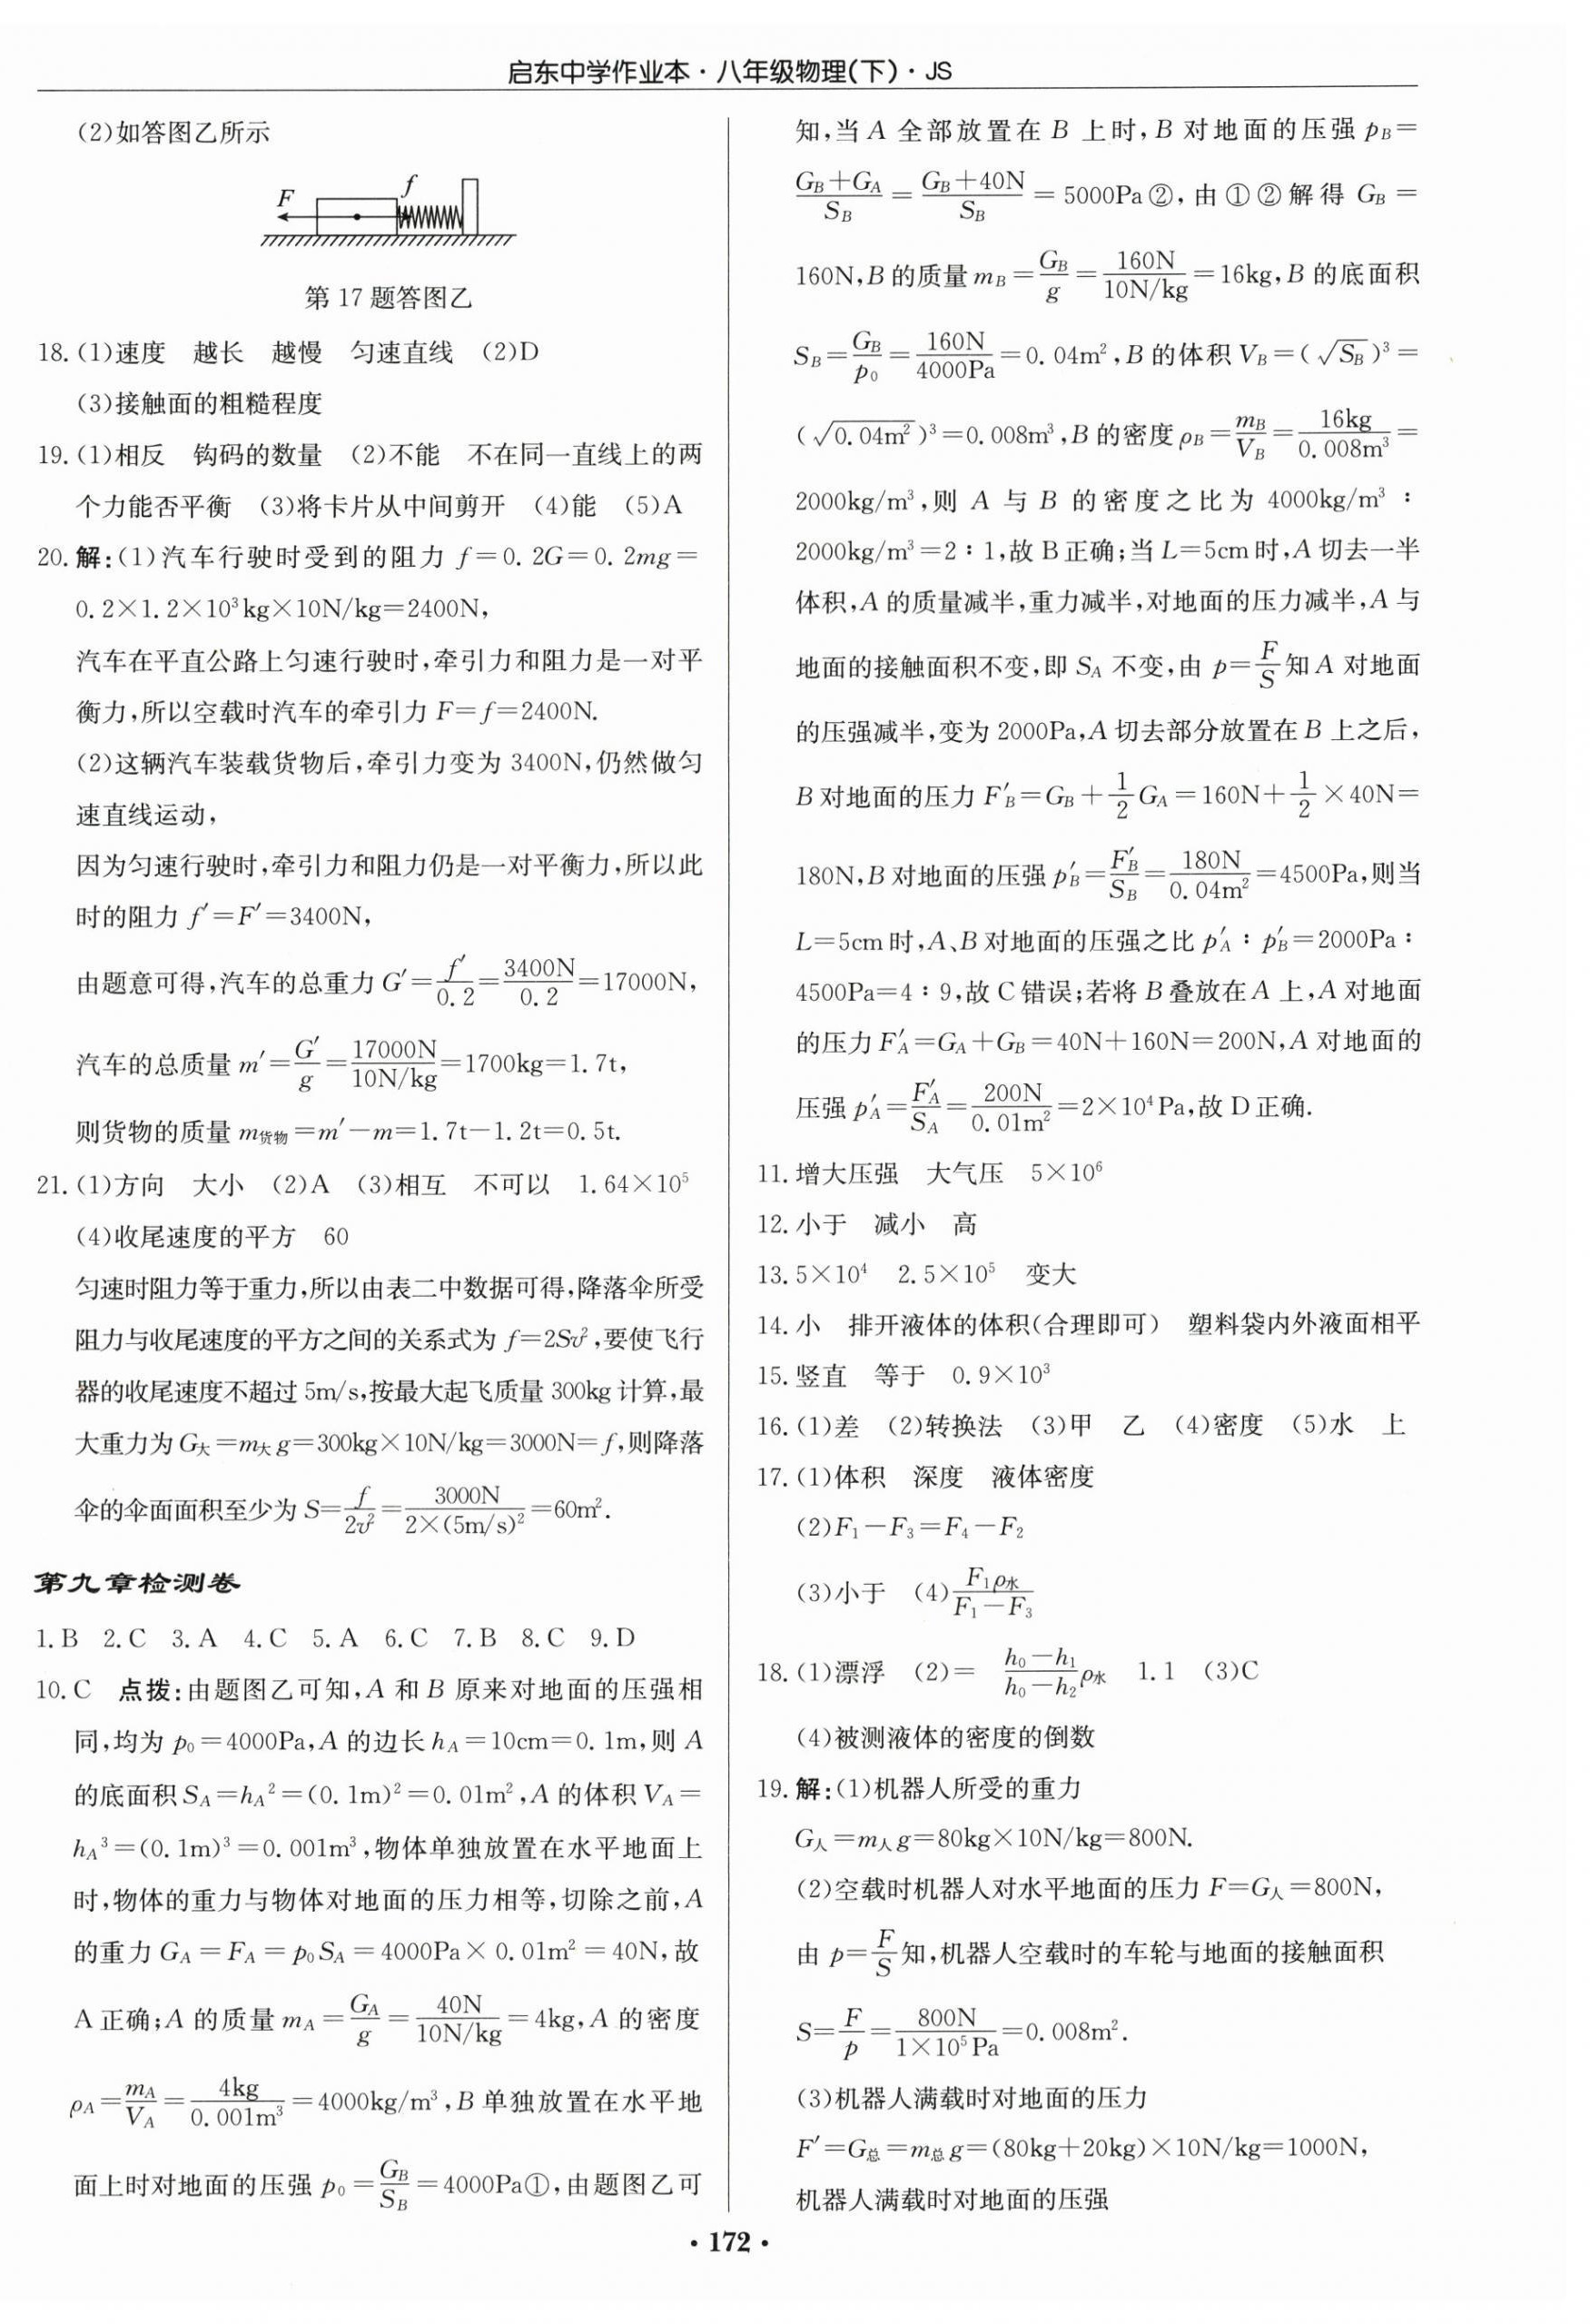 启东中学作业本·八年级物理(下)·JS
(2)如答图乙所示
F
f
第 17 题答图乙
18. (1)速度 越长 越慢 匀速直线 (2)D
(3)接触面的粗糙程度
19. (1)相反 钩码的数量 (2)不能 不在同一直线上的两
个力能否平衡 (3)将卡片从中间剪开 (4)能 (5)A
20. 解:(1)汽车行驶时受到的阻力 f=0.2G=0.2mg=
0.2×1.2×10³kg×10N/kg=2400N,
汽车在平直公路上匀速行驶时,牵引力和阻力是一对平
衡力,所以空载时汽车的牵引力 F=f=2400N.
(2)这辆汽车装载货物后,牵引力变为 3400N,仍然做匀
速直线运动,
因为匀速行驶时,牵引力和阻力仍是一对平衡力,所以此
时的阻力 f′=F′=3400N,
由题意可得,汽车的总重力 G′=f′/0.2=3400N/0.2=17000N,
汽车的总质量 m′=G′/g=17000N/10N/kg=1700kg=1.7t,
则货物的质量 m货物=m′−m=1.7t−1.2t=0.5t.
21. (1)方向 大小 (2)A (3)相互 不可以 1.64×10⁵
(4)收尾速度的平方 60
匀速时阻力等于重力,所以由表二中数据可得,降落伞所受
阻力与收尾速度的平方之间的关系式为 f=2Sv²,要使飞行
器的收尾速度不超过 5m/s,按最大起飞质量 300kg 计算,最
大重力为 G大=m大g=300kg×10N/kg=3000N=f,则降落
伞的伞面面积至少为 S=f/2v²=3000N/2×(5m/s)²=60m².
第九章检测卷
1. B 2. C 3. A 4. C 5. A 6. C 7. B 8. C 9. D
10. C 点拨:由题图乙可知,A 和 B 原来对地面的压强相
同,均为 p₀=4000Pa,A 的边长 hA=10cm=0.1m,则 A
的底面积 SA=hA²=(0.1m)²=0.01m²,A 的体积 VA=
hA³=(0.1m)³=0.001m³,物体单独放置在水平地面上
时,物体的重力与物体对地面的压力相等,切除之前,A
的重力 GA=FA=p₀SA=4000Pa×0.01m²=40N,故
A 正确;A 的质量 mA=GA/g=40N/10N/kg=4kg,A 的密度
ρA=mA/VA=4kg/0.001m³=4000kg/m³,B 单独放置在水平地
面上时对地面的压强 p₀=GB/SB=4000Pa①,由题图乙可
知,当 A 全部放置在 B 上时,B 对地面的压强 pB=
GB+GA/SB=GB+40N/SB=5000Pa②,由①②解得 GB=
160N,B 的质量 mB=GB/g=160N/10N/kg=16kg,B 的底面积
SB=GB/p₀=160N/4000Pa=0.04m²,B 的体积 VB=(√SB)³=
(√0.04m²)³=0.008m³,B 的密度 ρB=mB/VB=16kg/0.008m³=
2000kg/m³,则 A 与 B 的密度之比为 4000kg/m³:
2000kg/m³=2:1,故 B 正确;当 L=5cm 时,A 切去一半
体积,A 的质量减半,重力减半,对地面的压力减半,A 与
地面的接触面积不变,即 SA 不变,由 p=F/S 知 A 对地面
的压强减半,变为 2000Pa,A 切去部分放置在 B 上之后,
B 对地面的压力 F′B=GB+1/2GA=160N+1/2×40N=
180N,B 对地面的压强 p′B=F′B/SB=180N/0.04m²=4500Pa,则当
L=5cm 时,A、B 对地面的压强之比 p′A:p′B=2000Pa:
4500Pa=4:9,故 C 错误;若将 B 叠放在 A 上,A 对地面
的压力 F′A=GA+GB=40N+160N=200N,A 对地面的
压强 p′A=F′A/SA=200N/0.01m²=2×10⁴Pa,故 D 正确.
11. 增大压强 大气压 5×10⁶
12. 小于 减小 高
13. 5×10⁴ 2.5×10⁵ 变大
14. 小 排开液体的体积(合理即可) 塑料袋内外液面相平
15. 竖直 等于 0.9×10³
16. (1)差 (2)转换法 (3)甲 乙 (4)密度 (5)水 上
17. (1)体积 深度 液体密度
(2)F₁−F₃=F₄−F₂
(3)小于 (4)F₁ρ水/F₁−F₃
18. (1)漂浮 (2)= h₀−h₁/h₀−h₂ρ水 1.1 (3)C
(4)被测液体的密度的倒数
19. 解:(1)机器人所受的重力
G人=m人g=80kg×10N/kg=800N.
(2)空载时机器人对水平地面的压力 F=G人=800N,
由 p=F/S 知,机器人空载时的车轮与地面的接触面积
S=F/p=800N/1×10⁵Pa=0.008m².
(3)机器人满载时对地面的压力
F′=G总=m总g=(80kg+20kg)×10N/kg=1000N,
机器人满载时对地面的压强
·172·